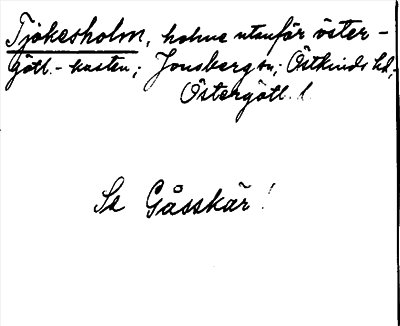 Tjökesholm, holme utanför öster-
götl.-kusten; Jonsberg sn; Östkinds hd,
Östergötl. l.
Se Gåsskär!